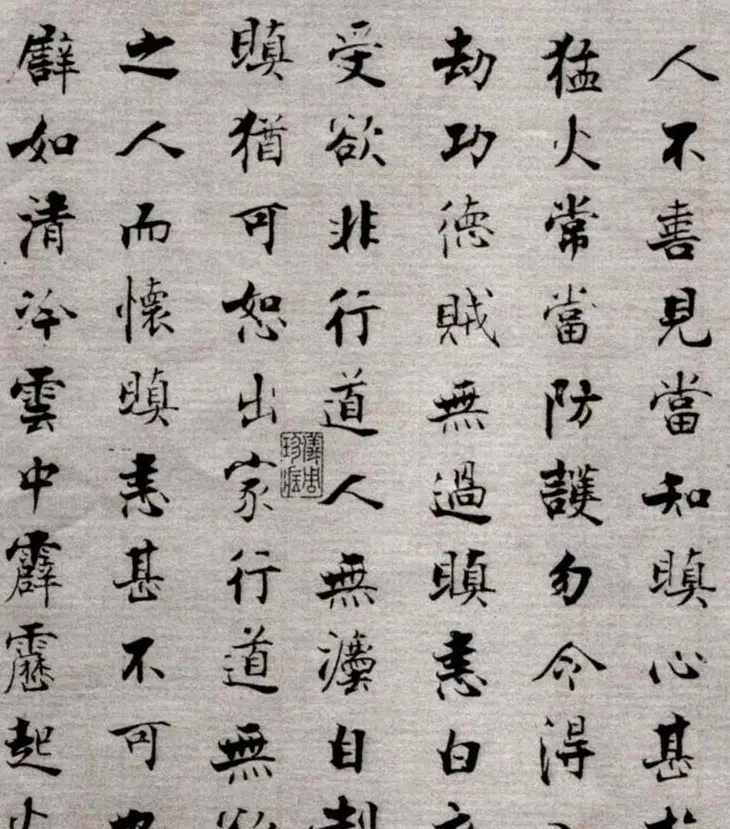 人不喜見當知瞋心甚於
猛火常當防護勿令得
劫功德賊無過瞋恚白衣
受欲非行道人無灋自制
瞋猶可恕出家行道無欲
之人而懷瞋恚甚不可也
譬如清冷雲中霹靂起火
儀周珍藏